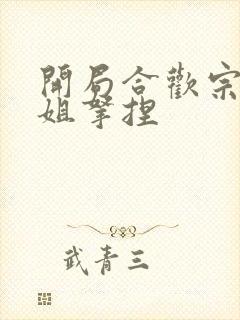 開局合歡宗
姐拏捏
武青三